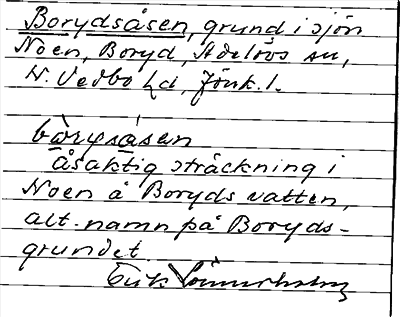 Borydsåsen, grund i sjön
Noen, Boryd, Adelövs sn,
N. Vedbo hd, Jönk. l.
bòrysåsen
åsaktig sträckning i
Noen å Boryds vatten,
alt. namn på Boryds-
grundet.
Erik